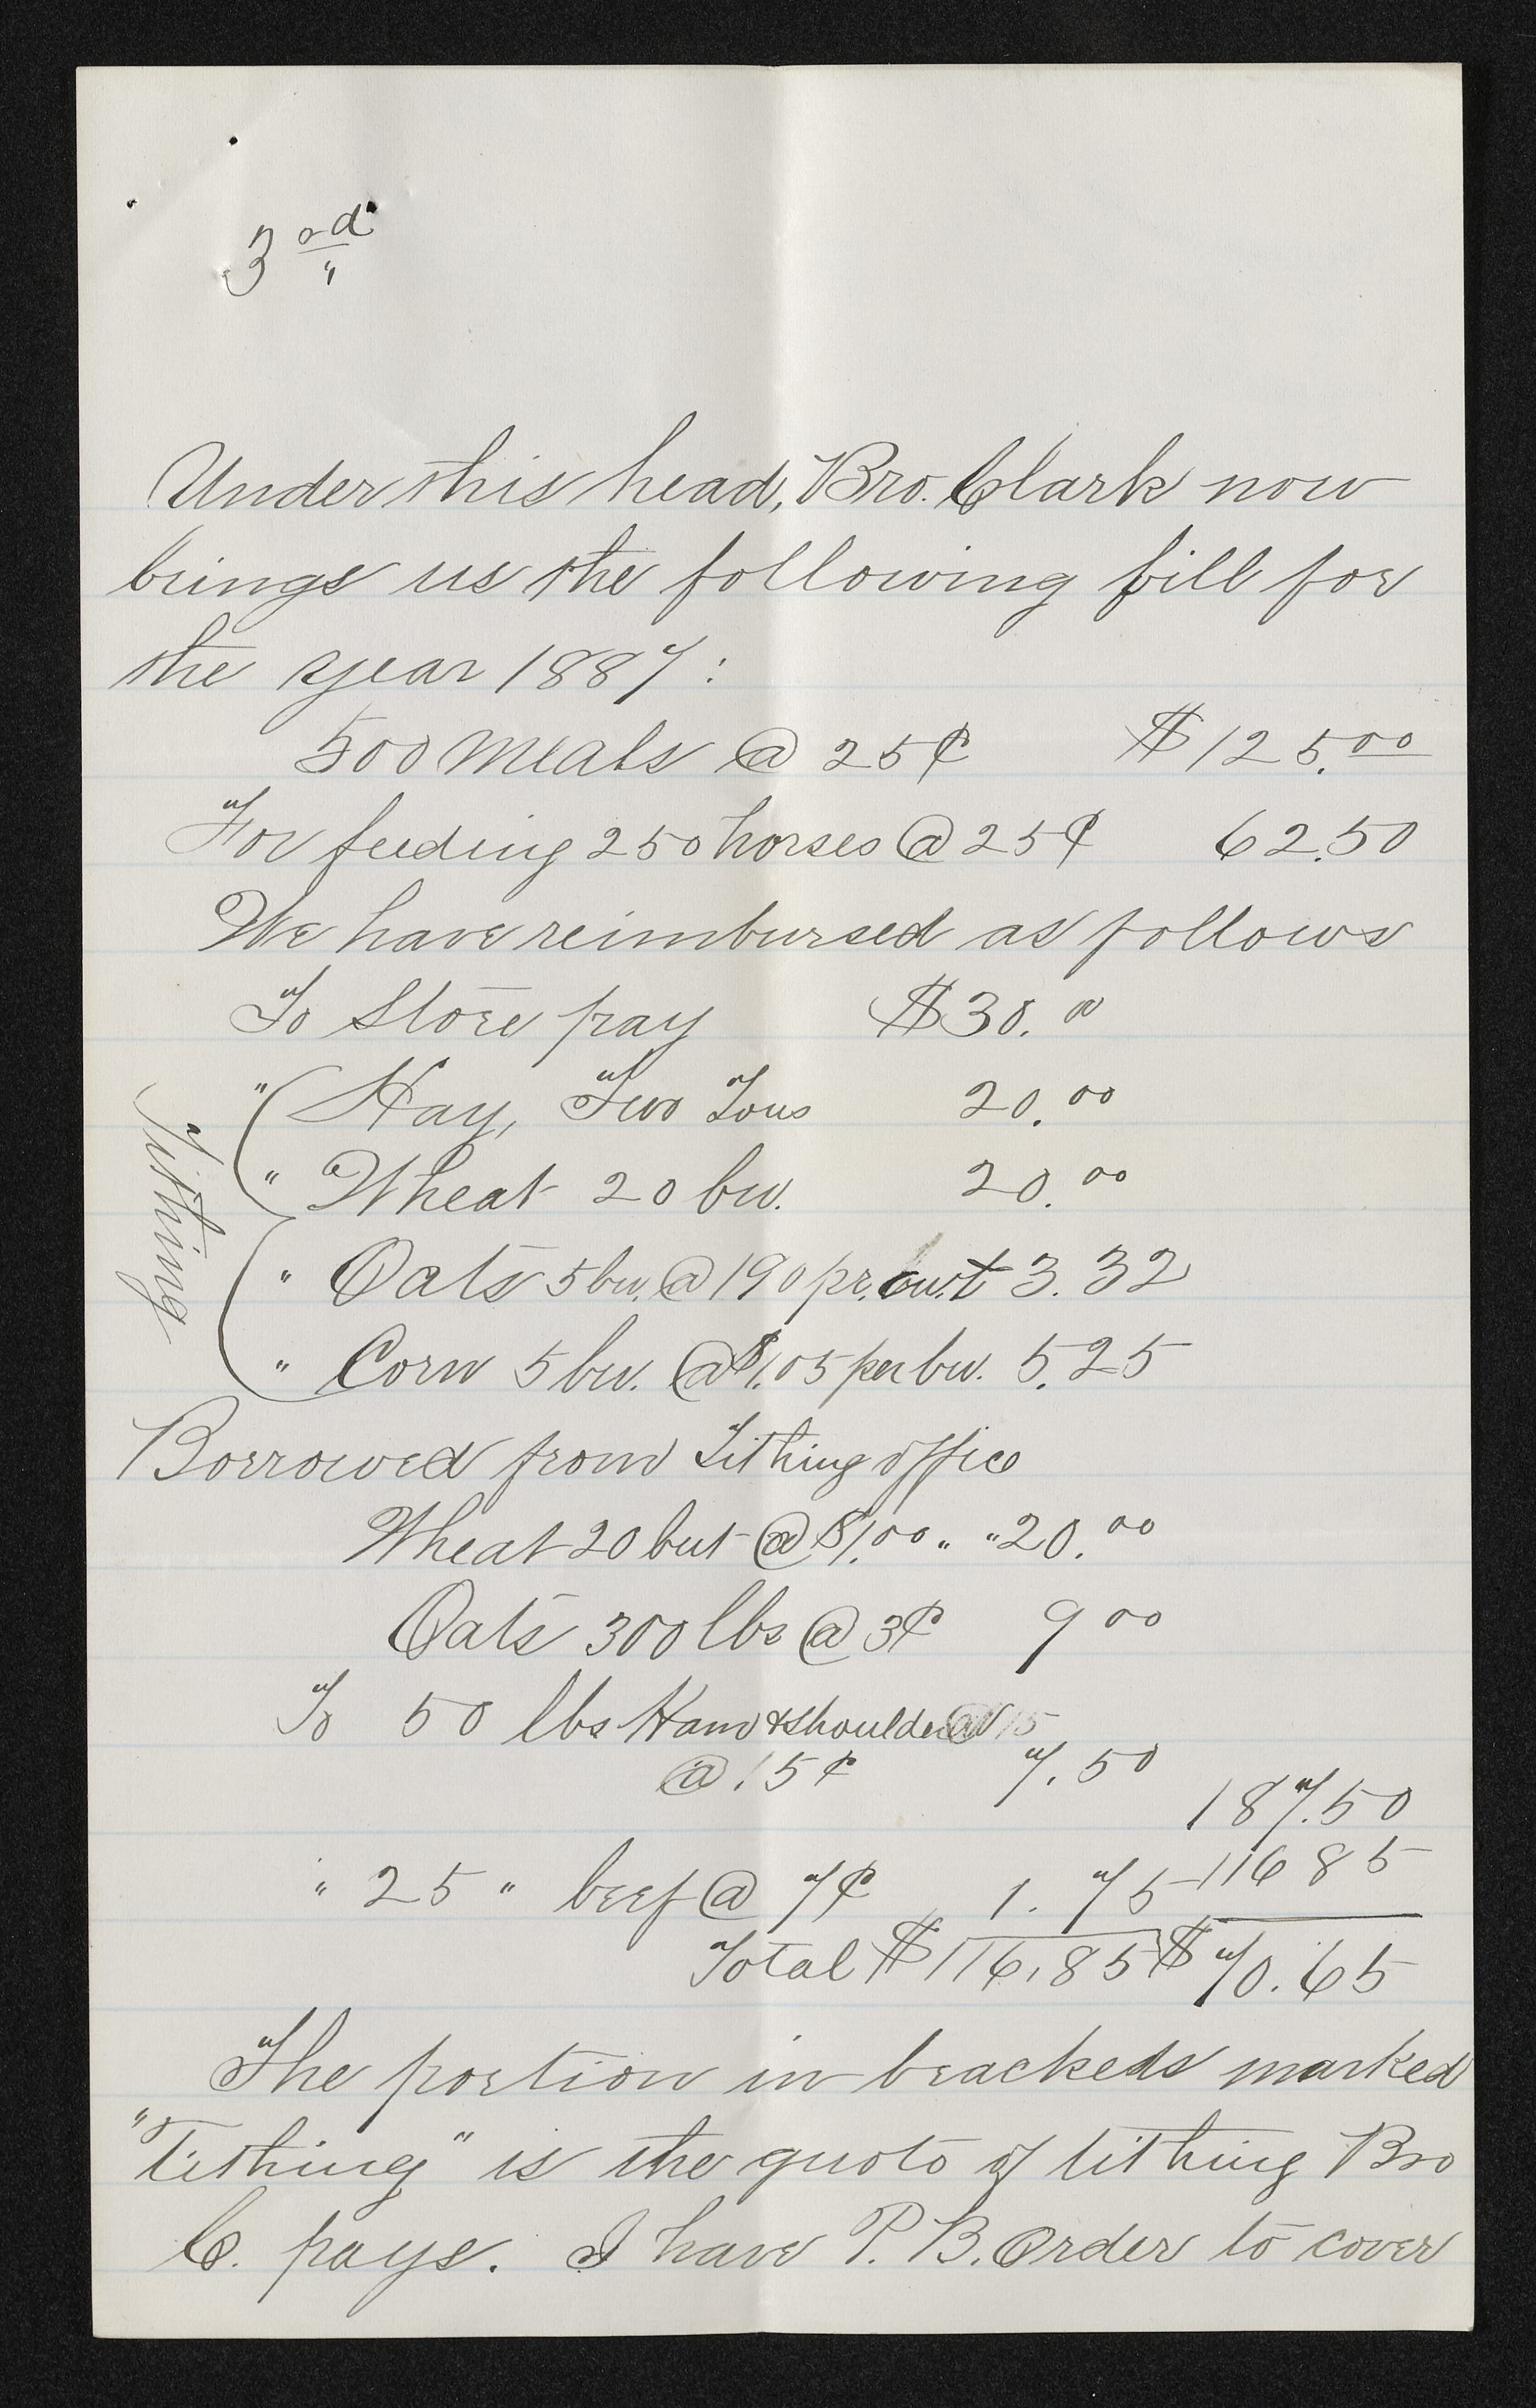 3rd
Under this head, Bro. Clark now
brings us the following bill for
the year 1887:
500 meals @ 25¢ $125.00
For feeding 250 horses @ 25¢ 62.50
We have reimbursed as follows
To Store pay $30.00
" Hay, Two Tons 20.00
" Wheat 20 bu. 20.00
" Oats 5 bu. @ 190 pr. cwt 3.32
" Corn 5 bu. @ $1.05 per bu. 5.25
Tithing
Borrowed from Tithing office
Wheat 20 but @ $1.00 " " 20.00
Oats 300 lbs @ 3¢ 9 00
To 50 lbs Ham & shoulder @ 15
@ 15¢ 7.50
187.50
" 25 " beef @ 7¢ 1.75 116 85
Total $116.85 $70.65
The portion in brackeds marked
"Tithing" is the quoto of tithing Bro
C. pays. I have P. B. Order to cover